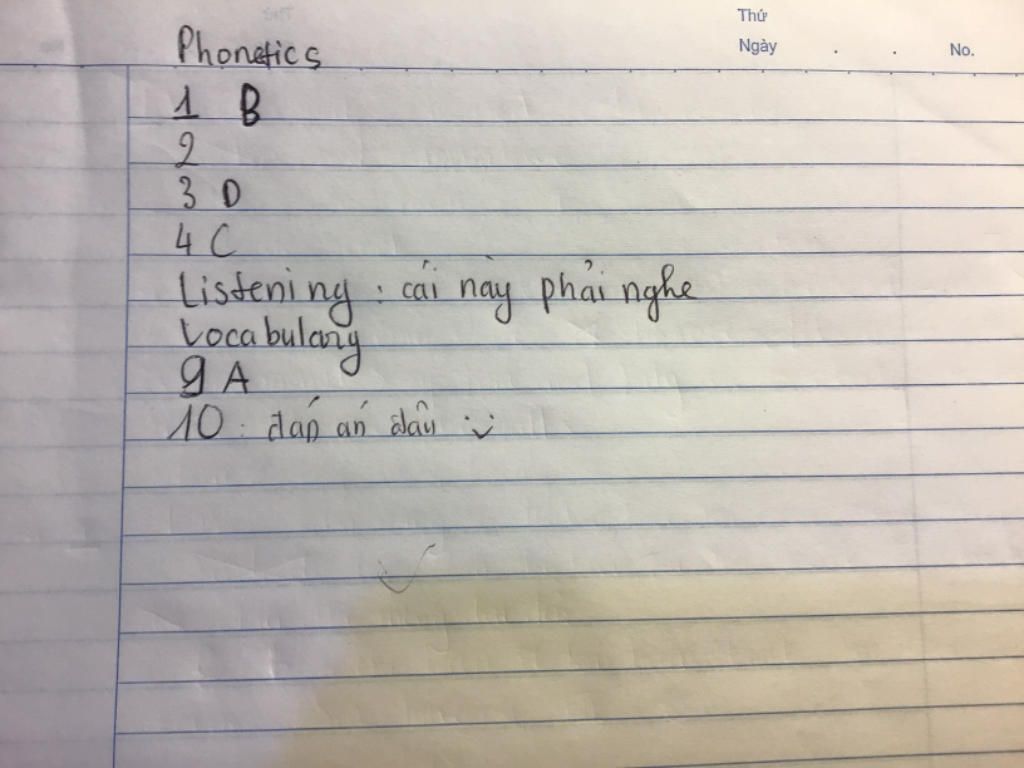 Thứ
Ngày . . No.
Phonetics
1 B
2
3 D
4 C
Listening : cái này phải nghe
Vocabulary
9 A
10 : đáp án đâu :v